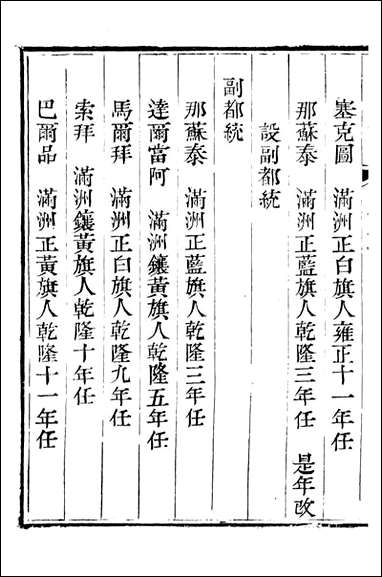 塞克圖 滿洲正白旗人雍正十一年任
那蘇泰 滿洲正藍旗人乾隆三年任 是年改
設副都統
副都統
那蘇泰 滿洲正藍旗人乾隆三年任
達爾當阿 滿洲鑲黃旗人乾隆五年任
馬爾拜 滿洲正白旗人乾隆九年任
索拜 滿洲鑲黃旗人乾隆十年任
巴爾品 滿洲正黃旗人乾隆十一年任